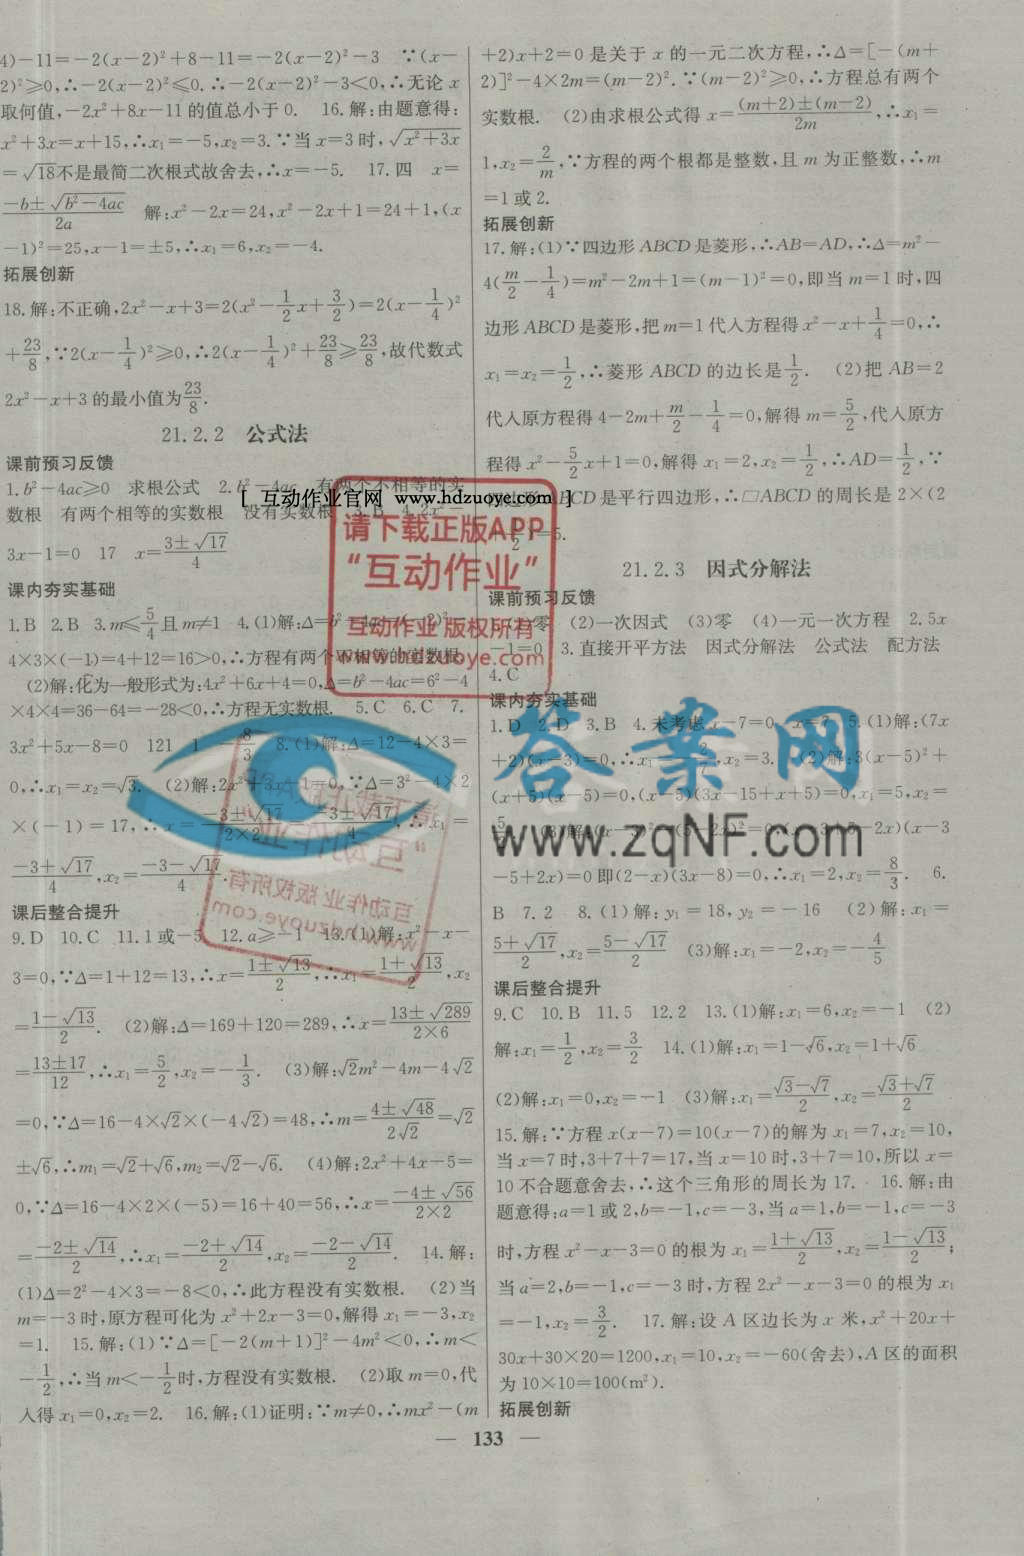 4)-11=-2(x-2)²+8-11=-2(x-2)²-3 ∵(x-
2)²≥0,∴-2(x-2)²≤0.∴-2(x-2)²-3<0,∴无论 x
取何值,-2x²+8x-11的值总小于0. 16.解:由题意得:
x²+3x=x+15,∴x₁=-5,x₂=3.∵当 x=3时,√(x²+3x)
=√18不是最简二次根式故舍去,∴x=-5. 17.四 x=
(-b±√(b²-4ac))/2a 解:x²-2x=24,x²-2x+1=24+1,(x
-1)²=25,x-1=±5,∴x₁=6,x₂=-4.
拓展创新
18.解:不正确,2x²-x+3=2(x²-1/2x+3/2)=2(x-1/4)²
+23/8,∵2(x-1/4)²≥0,∴2(x-1/4)²+23/8≥23/8,故代数式
2x²-x+3的最小值为23/8.
21.2.2 公式法
课前预习反馈
1.b²-4ac≥0 求根公式 2.b²-4ac 有两个不相等的实
数根 有两个相等的实数根 没有实数根 3.B 4.2x²-
3x-1=0 17 x=(3±√17)/4
课内夯实基础
1.B 2.B 3.m≤5/4且m≠1 4.(1)解:Δ=b²-4ac=(-2)²-
4×3×(-1)=4+12=16>0,∴方程有两个不相等的实数根.
(2)解:化为一般形式为:4x²+6x+4=0,Δ=b²-4ac=6²-4
×4×4=36-64=-28<0,∴方程无实数根. 5.C 6.C 7.
3x²+5x-8=0 121 1 -8/3 8.(1)解:Δ=12-4×3=
0,∴x₁=x₂=√3. (2)解:2x²+3x-1=0,∵Δ=3²-4×2
×(-1)=17,∴x=(-3±√17)/(2×2)=(-3±√17)/4,∴x₁=
(-3+√17)/4,x₂=(-3-√17)/4.
课后整合提升
9.D 10.C 11.1或-5 12.a≥-1 13.(1)解:x²-x-
3=0,∵Δ=1+12=13,∴x=(1±√13)/2,∴x₁=(1+√13)/2,x₂
=(1-√13)/2. (2)解:Δ=169+120=289,∴x=(13±√289)/(2×6)
=(13±17)/12,∴x₁=5/2,x₂=-1/3. (3)解:√2m²-4m-4√2
=0,∵Δ=16-4×√2×(-4√2)=48,∴m=(4±√48)/(2√2)=√2
±√6,∴m₁=√2+√6,m₂=√2-√6. (4)解:2x²+4x-5=
0,∵Δ=16-4×2×(-5)=16+40=56,∴x=(-4±√56)/(2×2)
=(-2±√14)/2,∴x₁=(-2+√14)/2,x₂=(-2-√14)/2. 14.解:
(1)Δ=2²-4×3=-8<0,∴此方程没有实数根. (2)当
m=-3时,原方程可化为 x²+2x-3=0,解得 x₁=-3,x₂
=1. 15.解:(1)∵Δ=[-2(m+1)]²-4m²<0,∴m<
-1/2,∴当m<-1/2时,方程没有实数根. (2)取 m=0,代
入得 x₁=0,x₂=2. 16.解:(1)证明:∵m≠0,∴mx²-(m
+2)x+2=0是关于 x 的一元二次方程,∴Δ=[-(m+
2)]²-4×2m=(m-2)².∵(m-2)²≥0,∴方程总有两个
实数根. (2)由求根公式得 x=((m+2)±(m-2))/2m,∴x₁=
1,x₂=2/m,∵方程的两个根都是整数,且 m 为正整数,∴m
=1或2.
拓展创新
17.解:(1)∵四边形ABCD是菱形,∴AB=AD,∴Δ=m²-
4(m/2-1/4)=m²-2m+1=(m-1)²=0,即当 m=1时,四
边形ABCD是菱形,把m=1代入方程得x²-x+1/4=0,∴
x₁=x₂=1/2,∴菱形 ABCD 的边长是1/2. (2)把 AB=2
代入原方程得4-2m+m/2-1/4=0,解得 m=5/2,代入原方
程得 x²-5/2x+1=0,解得 x₁=2,x₂=1/2,∴AD=1/2,∵
四边形ABCD是平行四边形,∴□ABCD的周长是2×(2
+1/2)=5.
21.2.3 因式分解法
课前预习反馈
1.(1)零 (2)一次因式 (3)零 (4)一元一次方程 2.5x
-1=0 3.直接开平方法 因式分解法 公式法 配方法
4.C
课内夯实基础
1.D 2.D 3.B 4.未考虑x-7=0 x=7 5.(1)解:(7x
+2)(x-3)=0,∴x₁= x₂=3. (2)解:3(x-5)²+
(x+5)(x-5)=0,(x-5)(3x-15+x+5)=0,x₁=5,x₂=
5/2 (3)解:(x-3)²-(5-2x)²=0,(x-3+5-2x)(x-3
-5+2x)=0即(2-x)(3x-8)=0,∴x₁=2,x₂=8/3. 6.
B 7.2 8.(1)解:y₁=18,y₂=-16 (2)解:x₁=
(5+√17)/2,x₂=(5-√17)/2 (3)解:x₁=-2,x₂=-4/5
课后整合提升
9.C 10.B 11.5 12.2 13.(1)解:x₁=6,x₂=-1 (2)
解:x₁=1/2,x₂=3/2 14.(1)解:x₁=1-√6,x₂=1+√6
(2)解:x₁=0,x₂=-1 (3)解:x₁=(√3-√7)/2,x₂=(√3+√7)/2
15.解:∵方程 x(x-7)=10(x-7)的解为 x₁=7,x₂=10,
当x=7时,3+7+7=17,当x=10时,3+7=10,所以x=
10不合题意舍去,∴这个三角形的周长为17. 16.解:由
题意得:a=1或2,b=-1,c=-3,当 a=1,b=-1,c=-3
时,方程 x²-x-3=0的根为 x₁=(1+√13)/2,x₂=(1-√13)/2;
当a=2,b=-1,c=-3时,方程2x²-x-3=0的根为x₁
=-1,x₂=3/2. 17.解:设 A 区边长为 x 米,x²+20x+
30x+30×20=1200,x₁=10,x₂=-60(舍去),A区的面积
为10×10=100(m²).
拓展创新
— 133 —
[ 互动作业官网 www.hdzuoye.com ]
请下载正版APP
“互动作业”
互动作业 版权所有
www.hdzuoye.com
答案网
www.zqNF.com
请下载正版APP
“互动作业”
互动作业 版权所有
www.hdzuoye.com